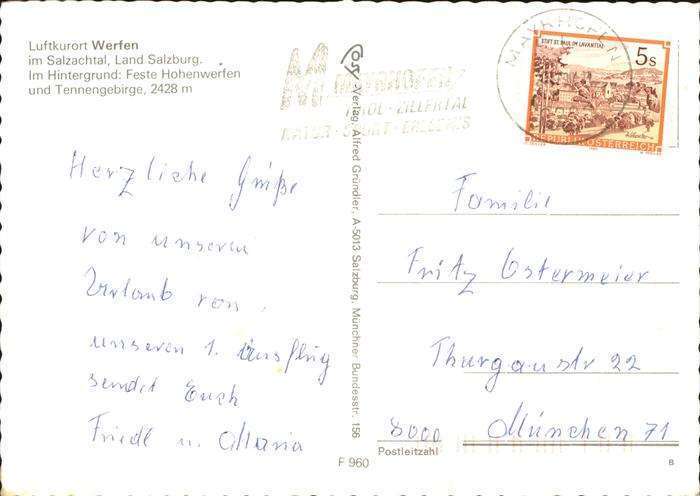 Luftkurort Werfen
im Salzachtal, Land Salzburg.
Im Hintergrund: Feste Hohenwerfen
und Tennengebirge, 2428 m
Herzliche Grüße
von unseren
Urlaub von
unseren 1. Ausflug
sendet Euch
Friedl u. Maria
Cosy -Verlag, Alfred Gründler, A-5013 Salzburg, Münchner Bundesstr. 156
F 960
MAYRHOFEN
MAYRHOFEN
TIROL - ZILLERTAL
NATUR - SPORT - ERLEBNIS
STIFT ST. PAUL IM LAVANTTAL
5 S
REPUBLIK ÖSTERREICH
Familie
Fritz Ostermeier
Thurgaustr 22
8000 München 71
Postleitzahl
8